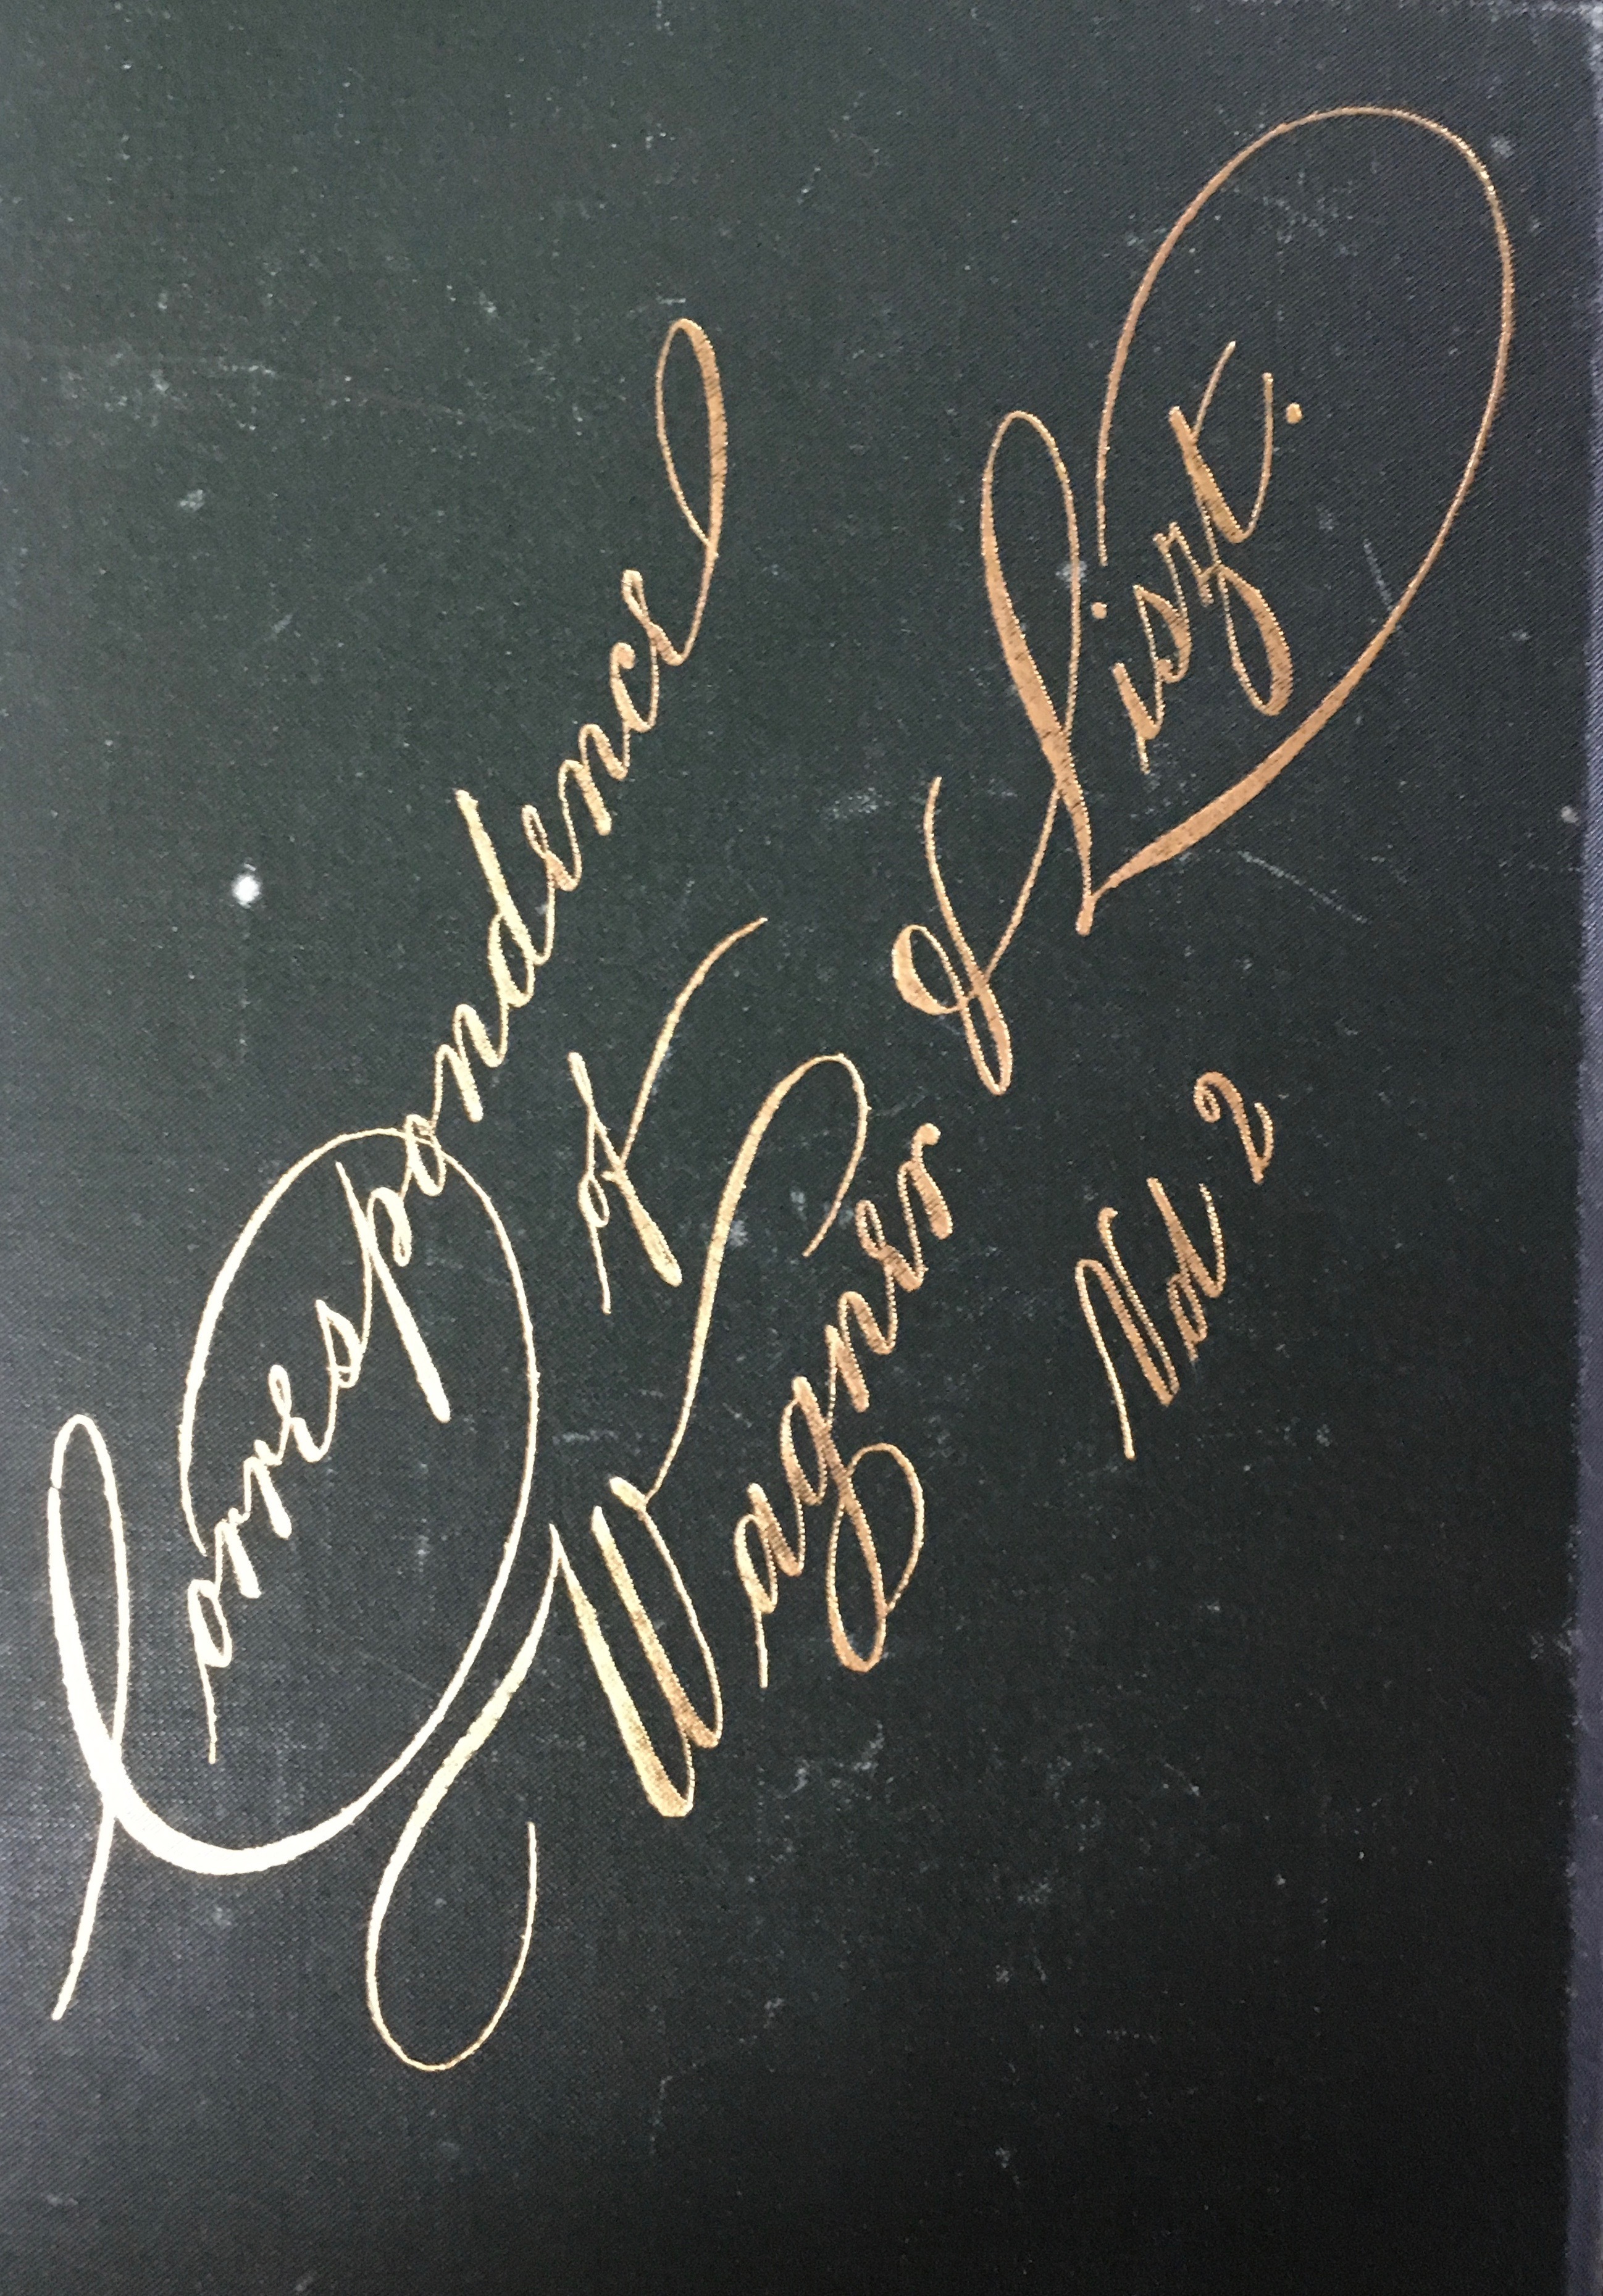 Correspondence
of
Wagner & Liszt.
Vol 2